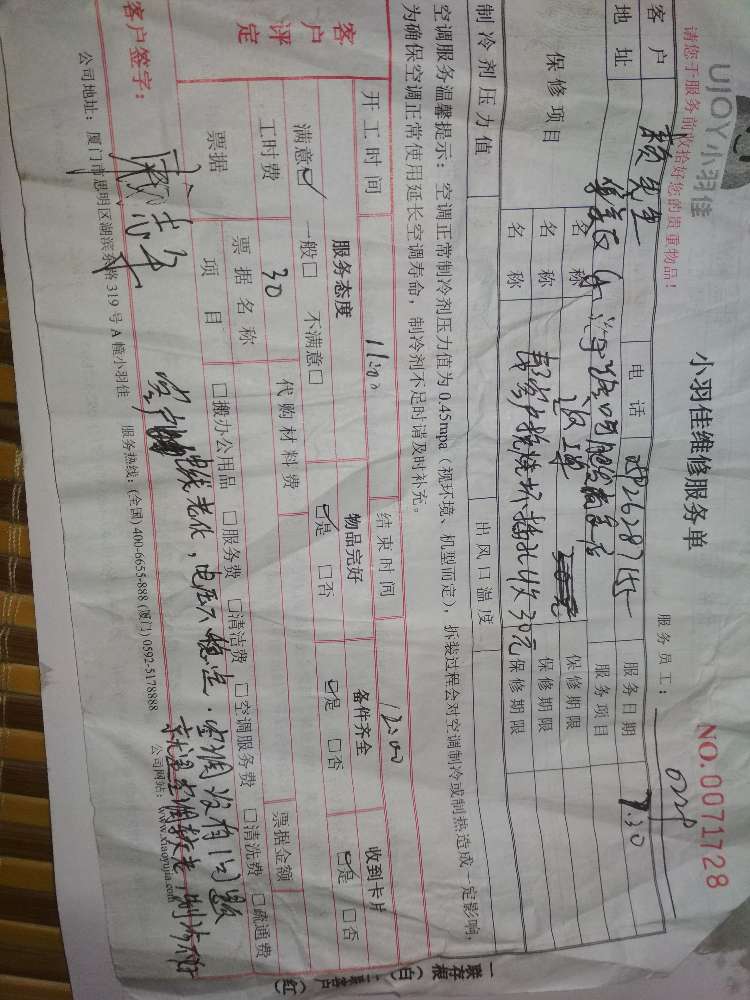 UJOY小羽佳
小羽佳维修服务单
NO.0071728
请您于服务前收拾好您的贵重物品！
服务员工：
客户 颜先生 电话 服务日期 7.30
地址 服务项目
保修项目 名称 保修期限
名称 保修期限
名称 帮客户换烧坏插孔收30元 保修期限
制冷剂压力值 出风口温度
空调服务温馨提示：空调正常制冷剂压力值为 0.45mpa（视环境、机型而定），拆装过程会对空调制冷或制热造成一定影响，
为确保空调正常使用延长空调寿命，制冷剂不足时请及时补充。
开工时间 11:00 结束时间 12:00
客户评定
服务态度 物品完好 备件齐全 收到卡片
满意☑ 一般□ 不满意□ ☑是 □否 ☑是 □否 ☑是 □否
工时费 30 代购材料费 票据金额
票据 票据名称
项目 □搬办公用品 □服务费 □清洁费 □空调服务费 □清洗费 □疏通费
客户 线老化，电压不稳定．空调没有问题
就是空调较老，制冷
客户签字：
公司地址：厦门市思明区湖滨东路 319 号 A 幢小羽佳 服务热线：(全国) 400-6655-888 (厦门) 0592-5178888 公司网站：www.xiaoyujia.com
一联存根（白） 二联客户（红）